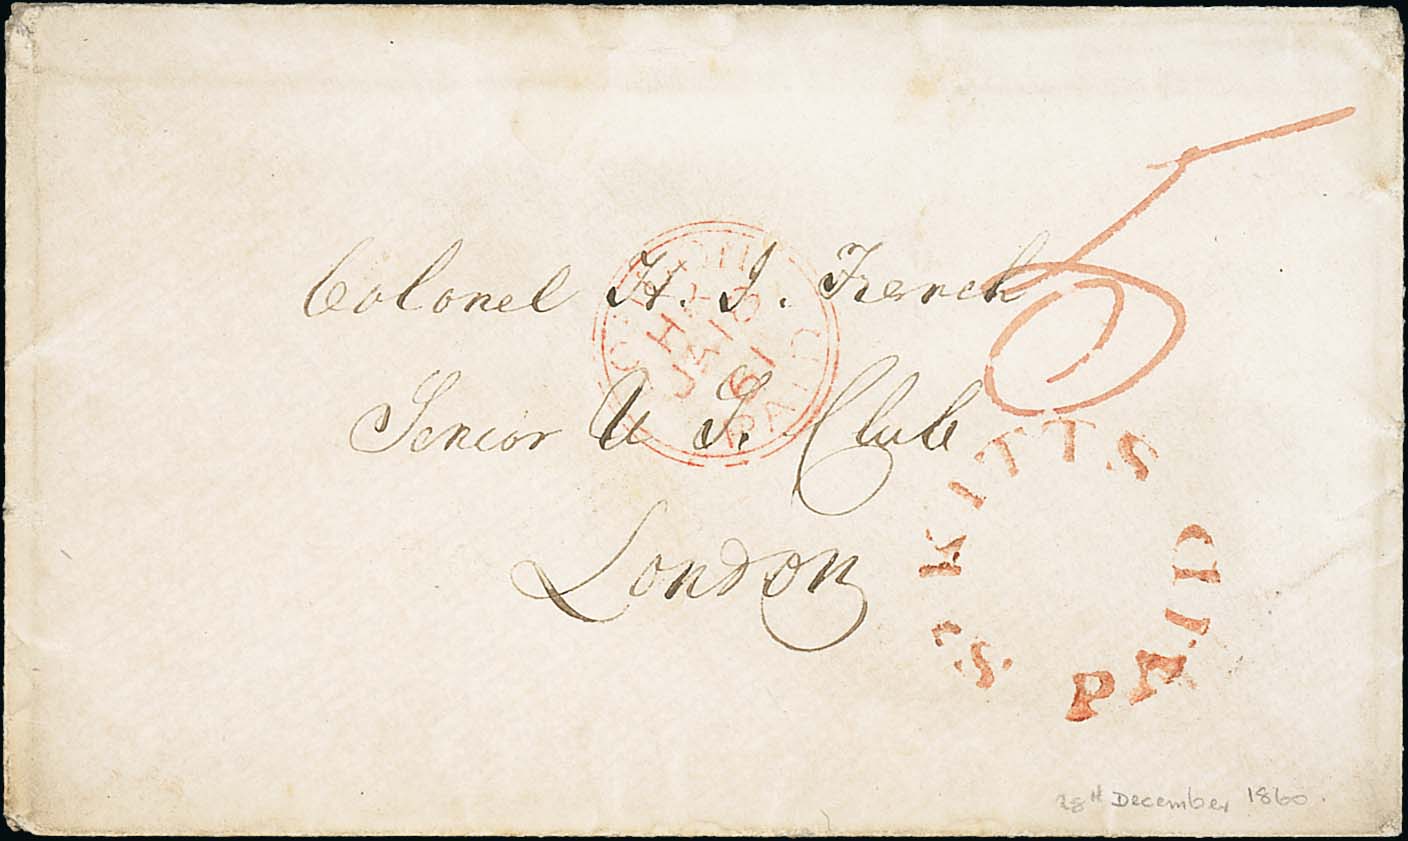 Colonel H. J. French
Senior U. S. Club
London
6
PAID
JA 18
61
S. KITTS PAID
28th December 1860.